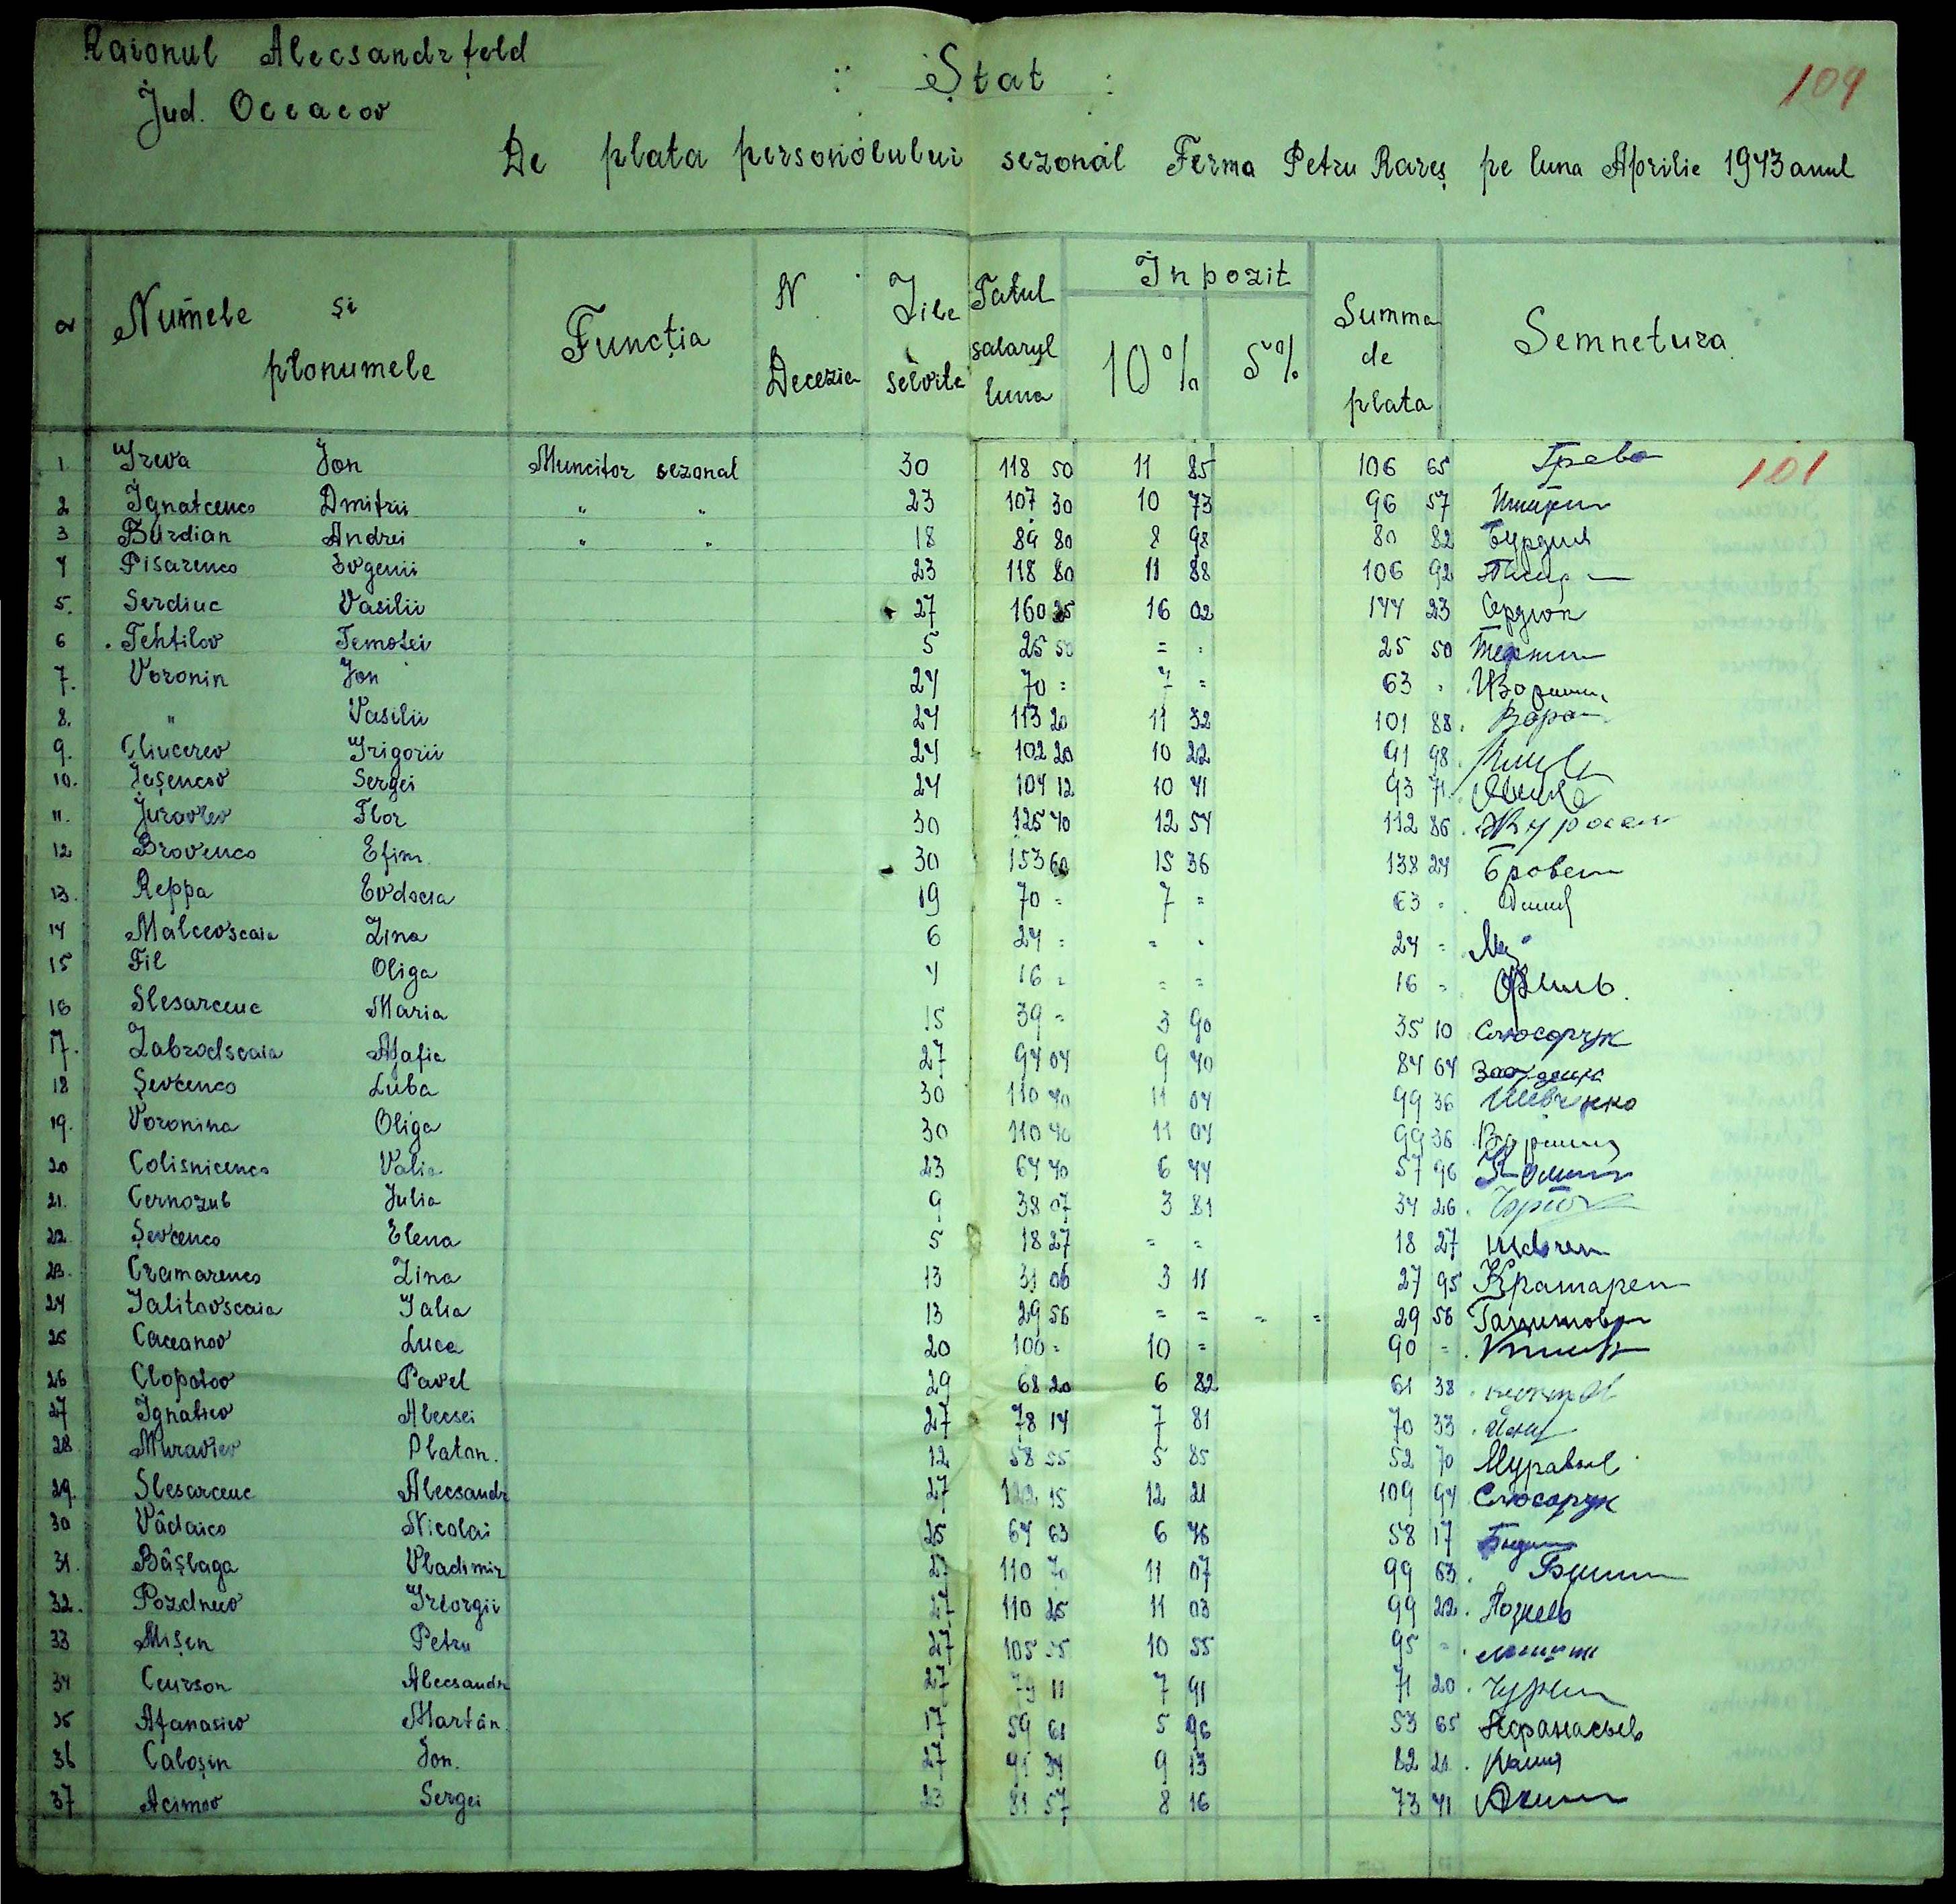 Raionul Alecsandrfeld
Jud. Oceacov
Stat
104
De plata personolului sezonal Ferma Petru Rareș pe luna Aprilie 1943 anul
Numele și plonumele Funcția N Decezia Zile servite Tatul salaryl luna Inpozit 10% 5% Summa de plata Semnetura
1 Greva Jon Muncitor sezonal 30 118 50 11 85 106 65 Грева 101
2 Ignatcenco Dmitrii " " 23 107 30 10 73 96 57
3 Burdian Andrei " " 18 89 80 8 98 80 82 Бурдия
4 Pisarenco Evgenii 23 118 80 11 88 106 92
5. Serdiuc Vasilii 27 160 25 16 02 144 23 Сердюк
6 Tehtilov Temotei 5 25 50 = 25 50
7. Voronin Jon 24 70 = 7 = 63 =
8. " Vasilii 24 113 20 11 32 101 88
9. Cliucerev Grigorii 24 102 20 10 22 91 98
10. Iașencov Sergei 24 104 12 10 41 93 71
11. Juravlev Flor 30 125 40 12 54 112 86 Журавл
12 Brovenco Efim 30 153 60 15 36 138 24 Бровен
13. Reppa Evdocia 19 70 = 7 = 63 =
14 Malcevscaia Zina 6 24 = = 24 =
15 Fil Oliga 4 16 = = = 16 = Филь.
16 Slesarcenc Maria 15 39 = 3 90 35 10 Слюсорчук
17. Zabrodscaia Agafia 27 94 04 9 40 84 64
18 Șevcenco Luba 30 110 40 11 04 99 36 Шевченко
19. Voronina Oliga 30 110 40 11 04 99 36
20 Colisnicenco Valia 23 64 40 6 44 57 96
21. Cernozub Julia 9 38 07 3 81 34 26
22. Șevcenco Elena 5 18 27 = = 18 27
23. Cramarenco Zina 13 31 06 3 11 27 95 Крамарен
24 Galitovscaia Galia 13 29 56 = = = = 29 56
25 Caceanov Luca 20 100 = 10 = 90 =
26 Clopotov Pavel 29 68 20 6 82 61 38
27 Ignatiev Alecsei 27 78 14 7 81 70 33
28 Muraviev Platon. 12 58 55 5 85 52 70 Муравьев
29. Slesarcenc Alecsandr 27 122 15 12 21 109 94 Слюсорчук
30 Vâdaico Nicolai 25 64 63 6 46 58 17
31. Bâșlaga Vladimir 27 110 70 11 07 99 63
32. Pozdneev Gheorgii 27 110 25 11 03 99 22
33 Mișen Petru 27 105 55 10 55 95 =
34 Ceurson Alecsandr 27 79 11 7 91 71 20
35 Afanasiev Martân. 17 59 61 5 96 53 65 Афанасьев
36 Caloșin Jon. 27 91 34 9 13 82 21
37 Acimov Sergei 23 81 57 8 16 73 41